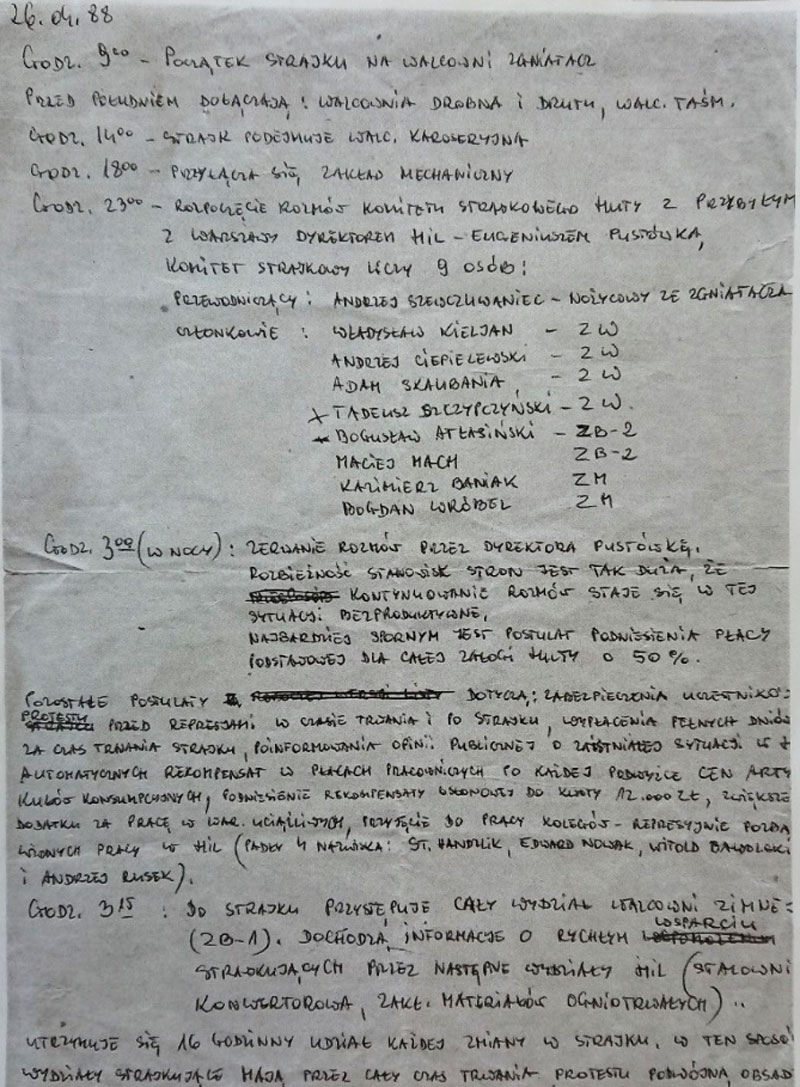 26.04.88
GODZ. 9⁰⁰ - POCZĄTEK STRAJKU NA WALCOWNI ZGNIATACZ
PRZED POŁUDNIEM DOŁĄCZAJĄ: WALCOWNIA DROBNA I DRUTU, WALC. TAŚM.
GODZ. 14⁰⁰ - STRAJK PODEJMUJE WALC. KAROSERYJNA
GODZ. 18⁰⁰ - PRZYŁĄCZA SIĘ ZAKŁAD MECHANICZNY
GODZ. 23⁰⁰ - ROZPOCZĘCIE ROZMÓW KOMITETU STRAJKOWEGO HUTY Z PRZYBYŁYM
Z WARSZAWY DYREKTOREM HIL - EUGENIUSZEM PUSTÓWKĄ,
KOMITET STRAJKOWY LICZY 9 OSÓB:
PRZEWODNICZĄCY: ANDRZEJ SZEWCZUWANIEC - NOŻYCOWY ZE ZGNIATACZA
CZŁONKOWIE : WŁADYSŁAW KIELJAN - ZW
ANDRZEJ CIEPIELEWSKI - ZW
ADAM SKAUBANIA - ZW
+ TADEUSZ SZCZYPCZYŃSKI - ZW.
+ BOGUSŁAW ATŁASIŃSKI - ZB-2
MACIEJ MACH ZB-2
KAZIMIERZ BANIAK ZM
BOGDAN WRÓBEL ZM
GODZ. 3⁰⁰ (W NOCY): ZERWANIE ROZMÓW PRZEZ DYREKTORA PUSTÓWKĘ.
ROZBIEŻNOŚĆ STANOWISK STRON JEST TAK DUŻA, ŻE
KONTYNUOWANIE ROZMÓW STAJE SIĘ W TEJ
SYTUACJI BEZPRODUKTYWNE.
NAJBARDZIEJ SPORNYM JEST POSTULAT PODNIESIENIA PŁACY
PODSTAWOWEJ DLA CAŁEJ ZAŁOGI HUTY O 50%.
POZOSTAŁE POSTULATY DOTYCZĄ: ZABEZPIECZENIA UCZESTNIKÓ
PROTESTU
PRZED REPRESJAMI W CZASIE TRWANIA I PO STRAJKU, WYPŁACENIA PEŁNYCH DNIÓW
ZA CZAS TRWANIA STRAJKU, POINFORMOWANIA OPINII PUBLICZNEJ O ZAISTNIAŁEJ SYTUACJI W
AUTOMATYCZNYCH REKOMPENSAT W PŁACACH PRACOWNICZYCH PO KAŻDEJ PODWYŻCE CEN ARTY
KUŁÓW KONSUMPCYJNYCH, PODNIESIENIE REKOMPENSATY OSŁONOWEJ DO KWOTY 12.000 ZŁ, ZWIĘKSZE
DODATKU ZA PRACĘ W WAR. UCIĄŻLIWYCH, PRZYJĘCIE DO PRACY KOLEGÓW - REPRESYJNIE POZBA
WIONYCH PRACY W HIL (PADŁY 4 NAZWISKA: ST. HANDZLIK, EDWARD NOWAK, WITOLD
I ANDRZEJ RUSEK).
GODZ. 3¹⁵ : DO STRAJKU PRZYSTĘPUJE CAŁY WYDZIAŁ WALCOWNI ZIMNE-
WSPARCIU
(ZB-1). DOCHODZĄ INFORMACJE O RYCHŁYM
STRAJKUJĄCYCH PRZEZ NASTĘPNE WYDZIAŁY HIL (STALOWNI
KONWERTOROWA, ZAKŁ. MATERIAŁÓW OGNIOTRWAŁYCH)..
UTRZYMUJE SIĘ 16 GODZINNY UDZIAŁ KAŻDEJ ZMIANY W STRAJKU. W TEN SPOSÓ
WYDZIAŁY STRAJKUJĄCE MAJĄ PRZEZ CAŁY CZAS TRWANIA PROTESTU PODWÓJNĄ OBSAD